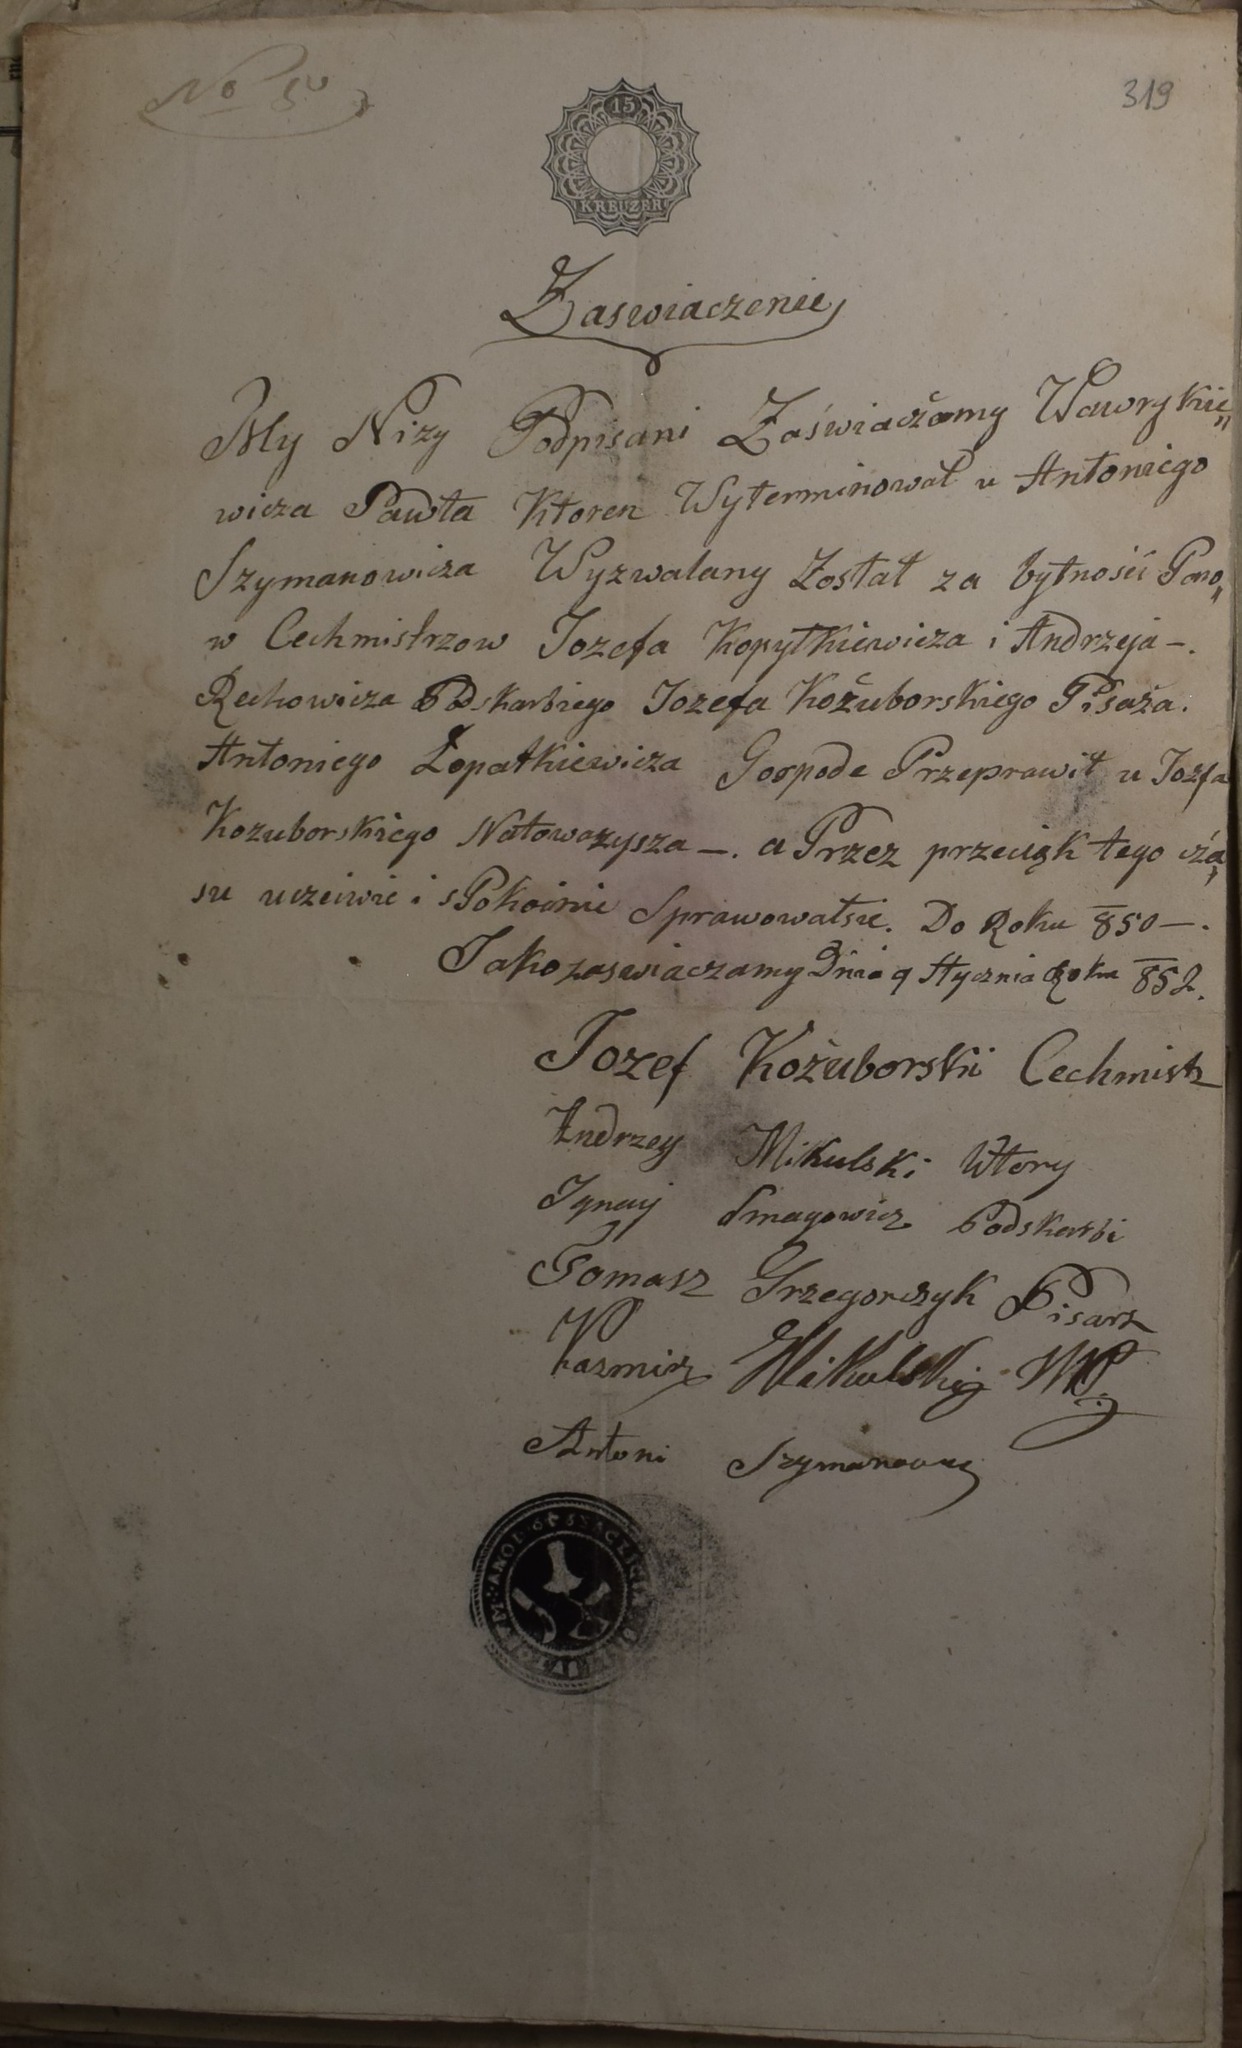 No 5
319
15
KREUZER
Zaswiaczenie
My Nizy Podpisani Zaświaczamy Wawrykie„
wicza Pawła Ktoren Wyterminował u Antoniego
Szymanowicza Wyzwalany Został za bytności Pano„
w Cechmistrzow Jozefa Kopytkiewicza i Andrzeja -.
Rechowicza Podskarbiego Jozefa Kożuborskiego Pisaża.
Antoniego Łopatkiewicza Gospode Przeprawił u Jozfa
Kozuborskiego Natowazysza -. a Przez przeciąk tego cża„
su uczciwie i sPokoinie Sprawowałsie. Do Roku 850 -.
Jako zaswiaczamy Dnia 9 Stycznia Roku 852.
Jozef Kożuborski Cechmistz
Andrzey Mikulski Wtory
Ignacy Smagowicz Podskarbi
Tomasz Grzegorczyk Pisarz
Kazmirz Mikulski MP.
Antoni Szymanowicz